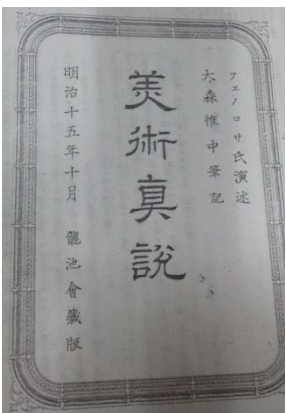 フエノロサ氏演述
大森惟中筆記
美術真説
明治十五年十月 龍池會藏版